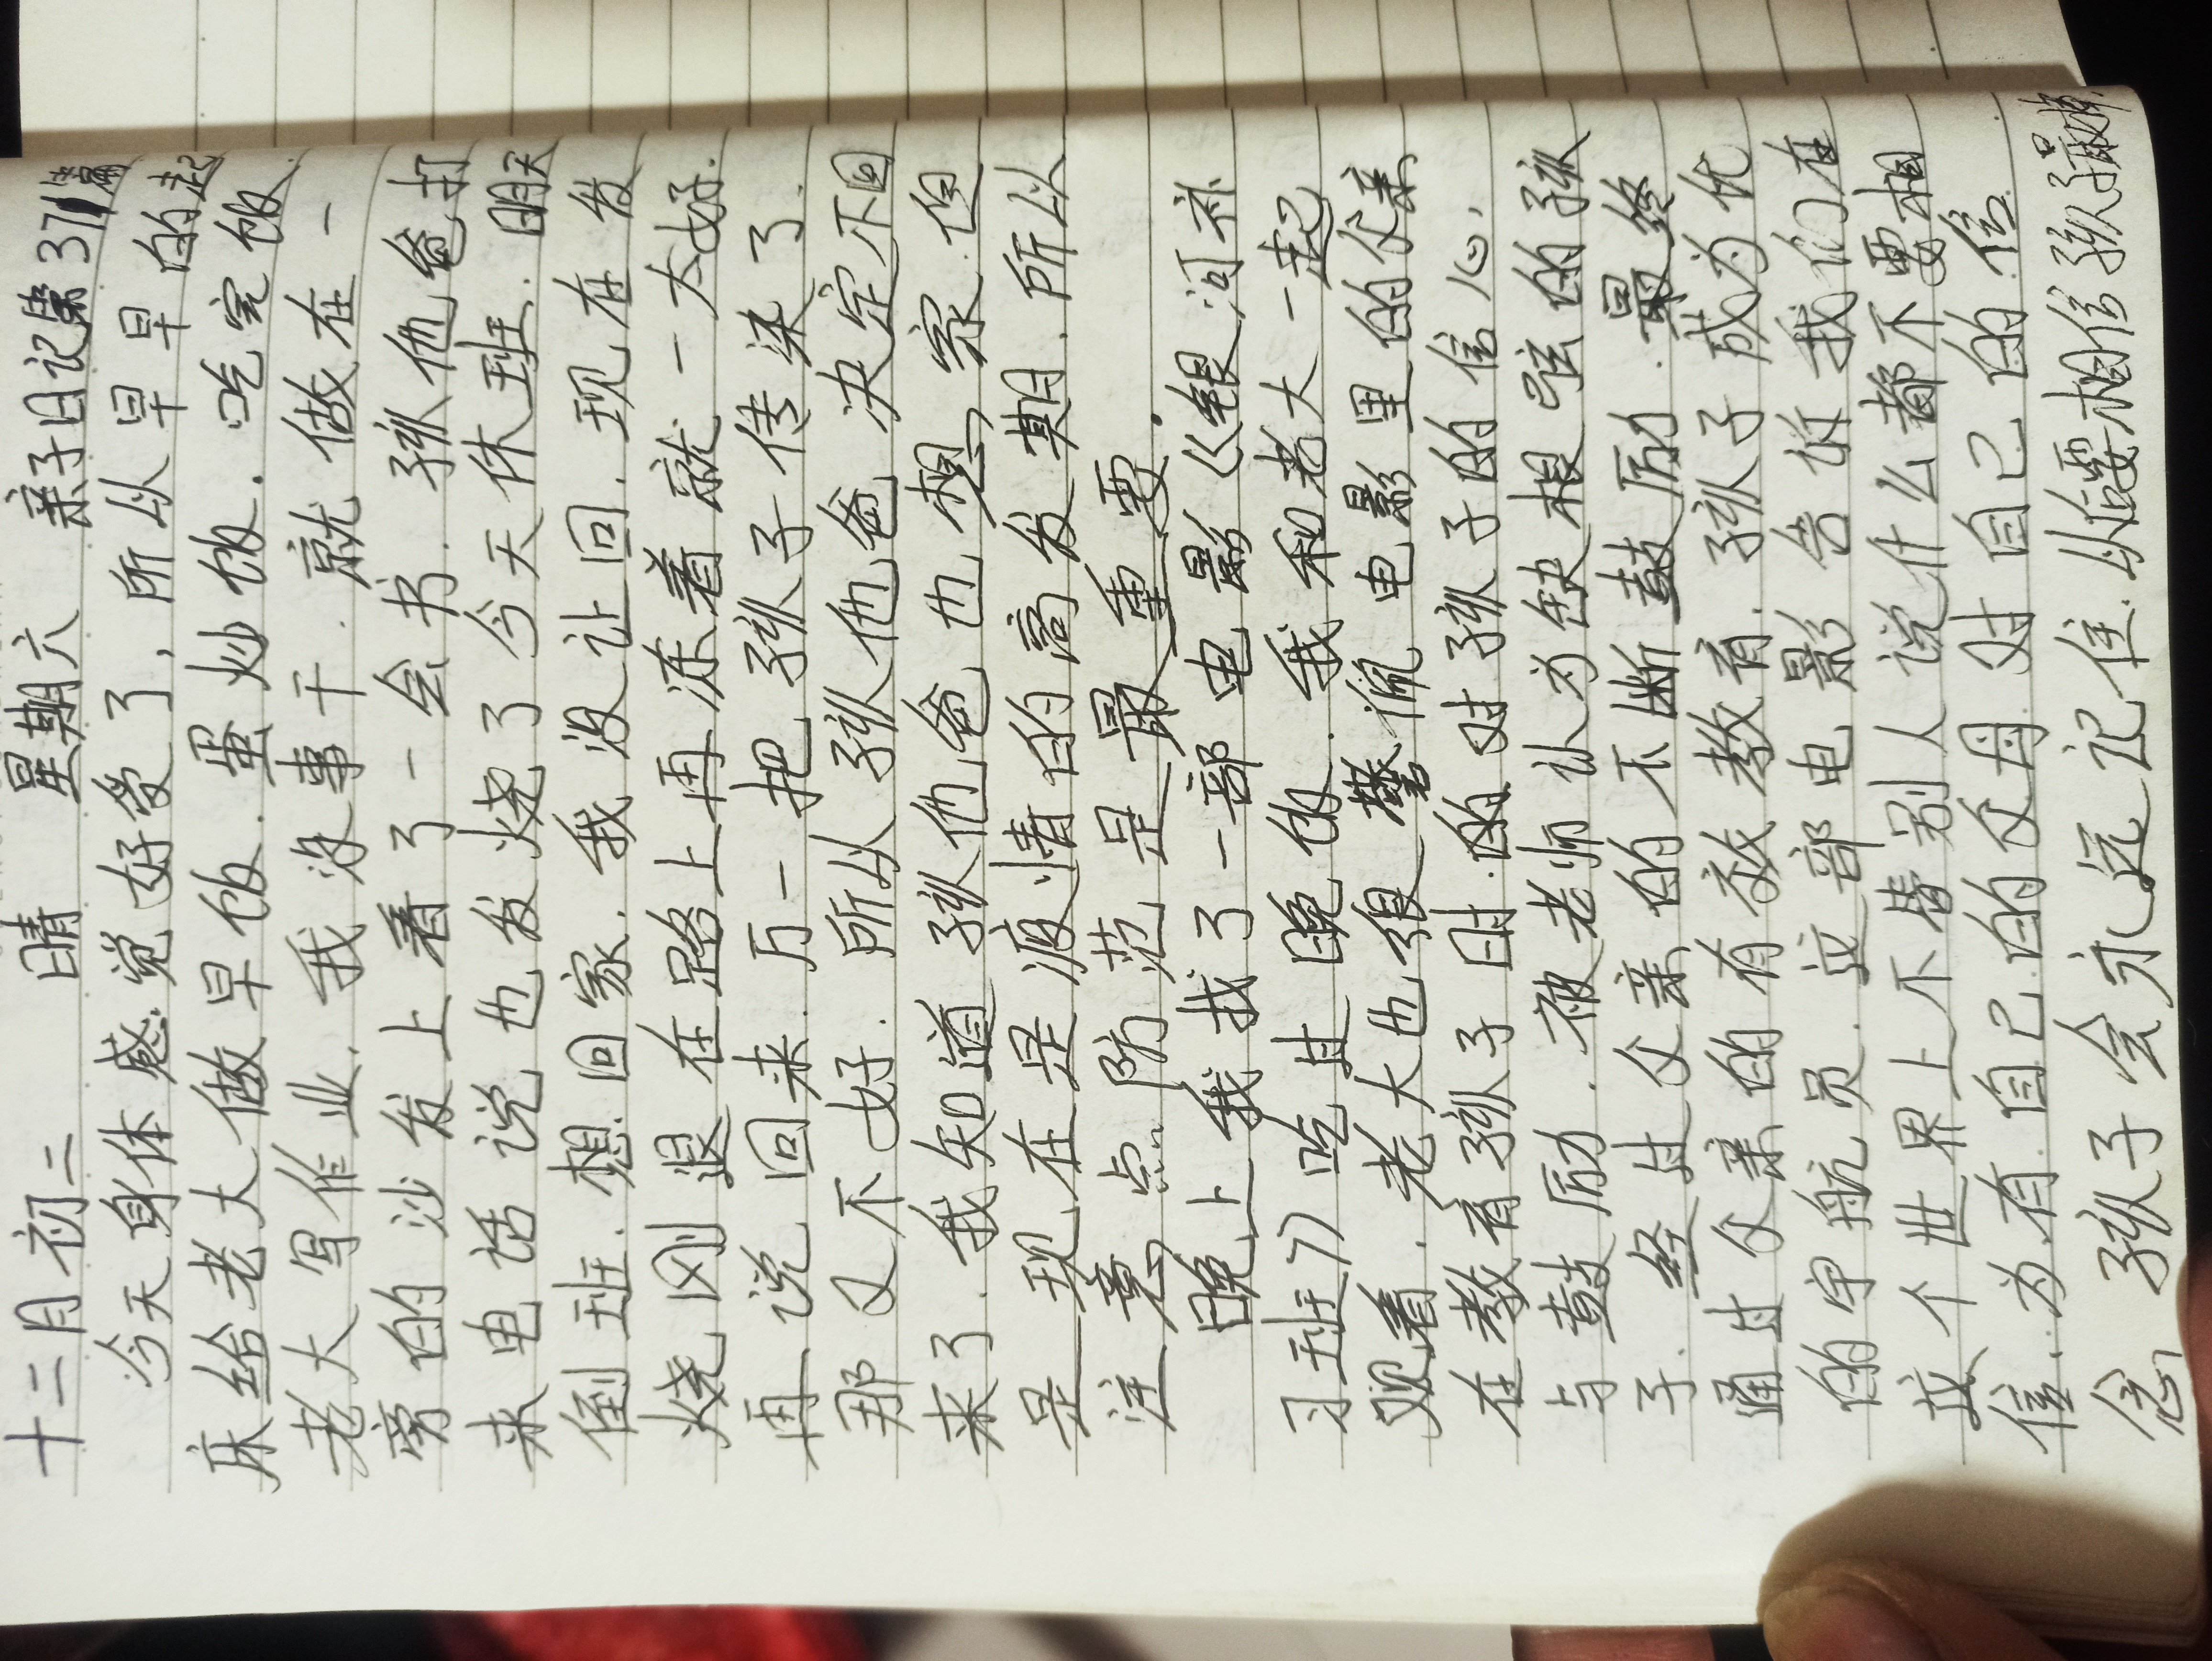 十二月初二 晴 星期六 亲子日记第371篇
今天身体感觉好受了，所以早早的起
床给老大做早饭.蛋炒饭.吃完饭.
老大写作业.我没事干.就做在一
旁的沙发上看了一会书.孩他爸打
来电话说也发烧了今天休班.明天
倒班.想回家.我没让回.现在发
烧刚退在路上再冻着就一大好.
再说回来.万一把孩子传染了.
那又不好.所以孩他爸决定不回
来了.我知道孩他爸也想家.但
是现在是疫情的高发期.所以
注意点.防范是最重要.
晚上我找了一部电影《银河补
习班》吃过晚饭.我和老大一起
观看.老大也很 佩电影里的父亲
在教育孩子时.的对孩子的信心.
与鼓励.被老师认为缺根弦的孩
子.经过父亲的不断鼓厉.最终
通过父亲的有效教育.孩子成为优
的宇航员.这部电影告诉我们在
这个世界上不替别人说什么都不要相
信.为有自己的父母对自己的信
念孩子会永远记住.从 要相信孩子